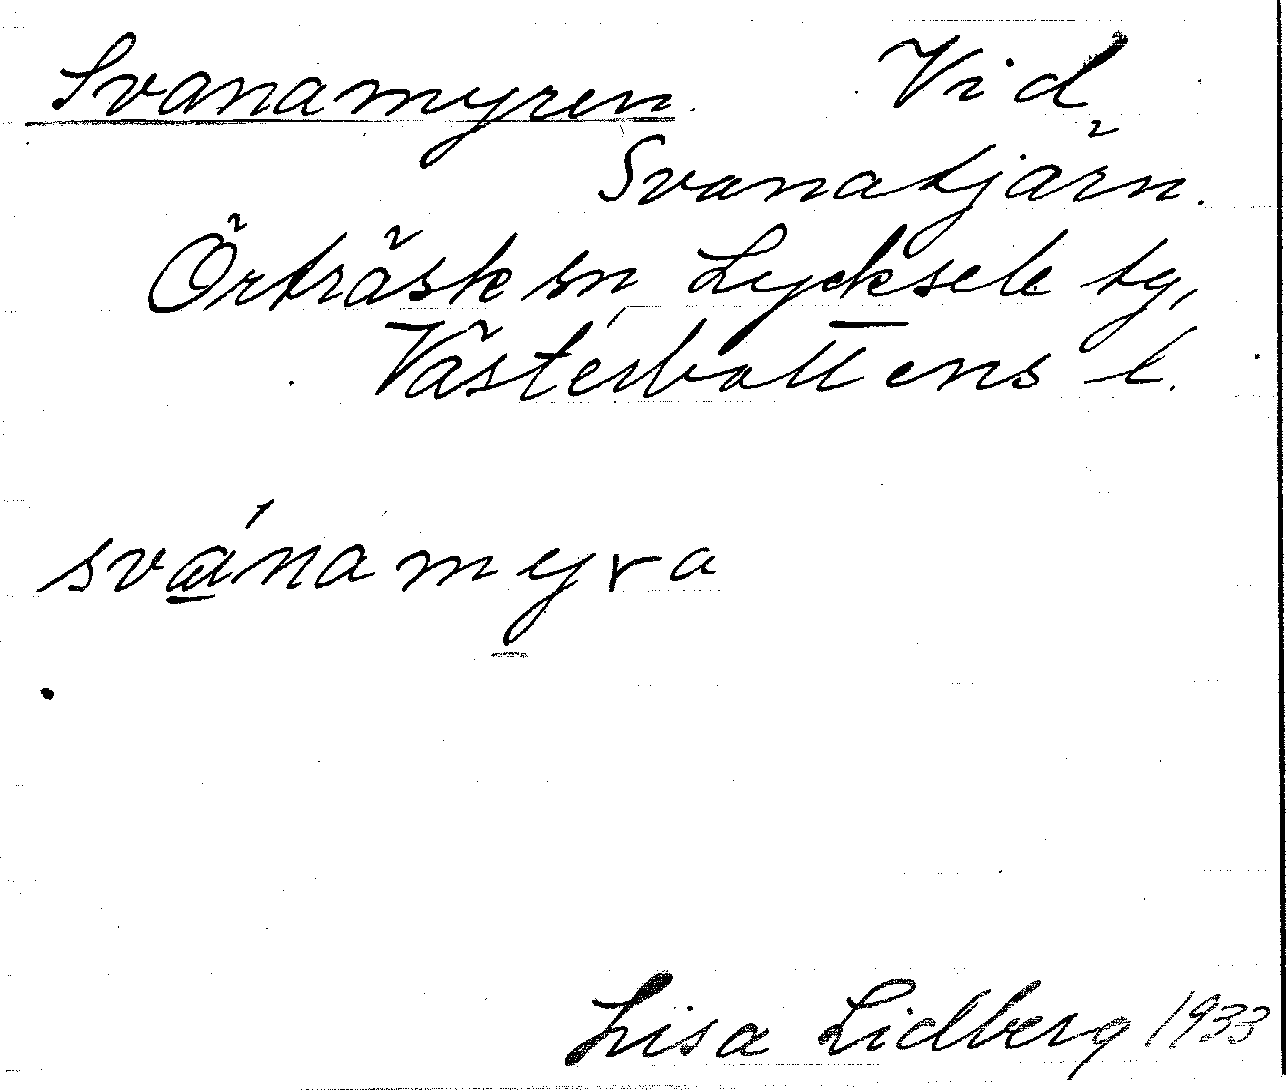 Svanamyren. Vid
Svanatjärn.
Örträsk sn, Lycksele tg,
Västerbottens l.
svánamyra
Lisa Lidberg 1933